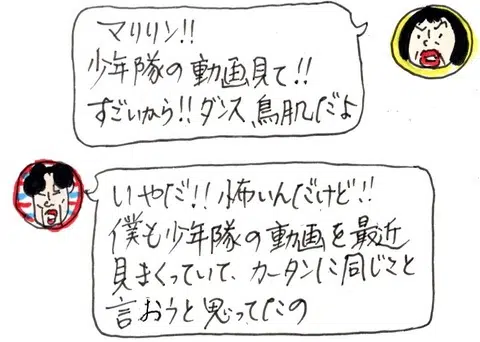 マリリン!!
少年隊の動画見て!!
すごいから!!ダンス、鳥肌だよ
いやだ!!怖いんだけど!!
僕も少年隊の動画を最近
見まくっていて、カータンに同じこと
言おうと思ってたの